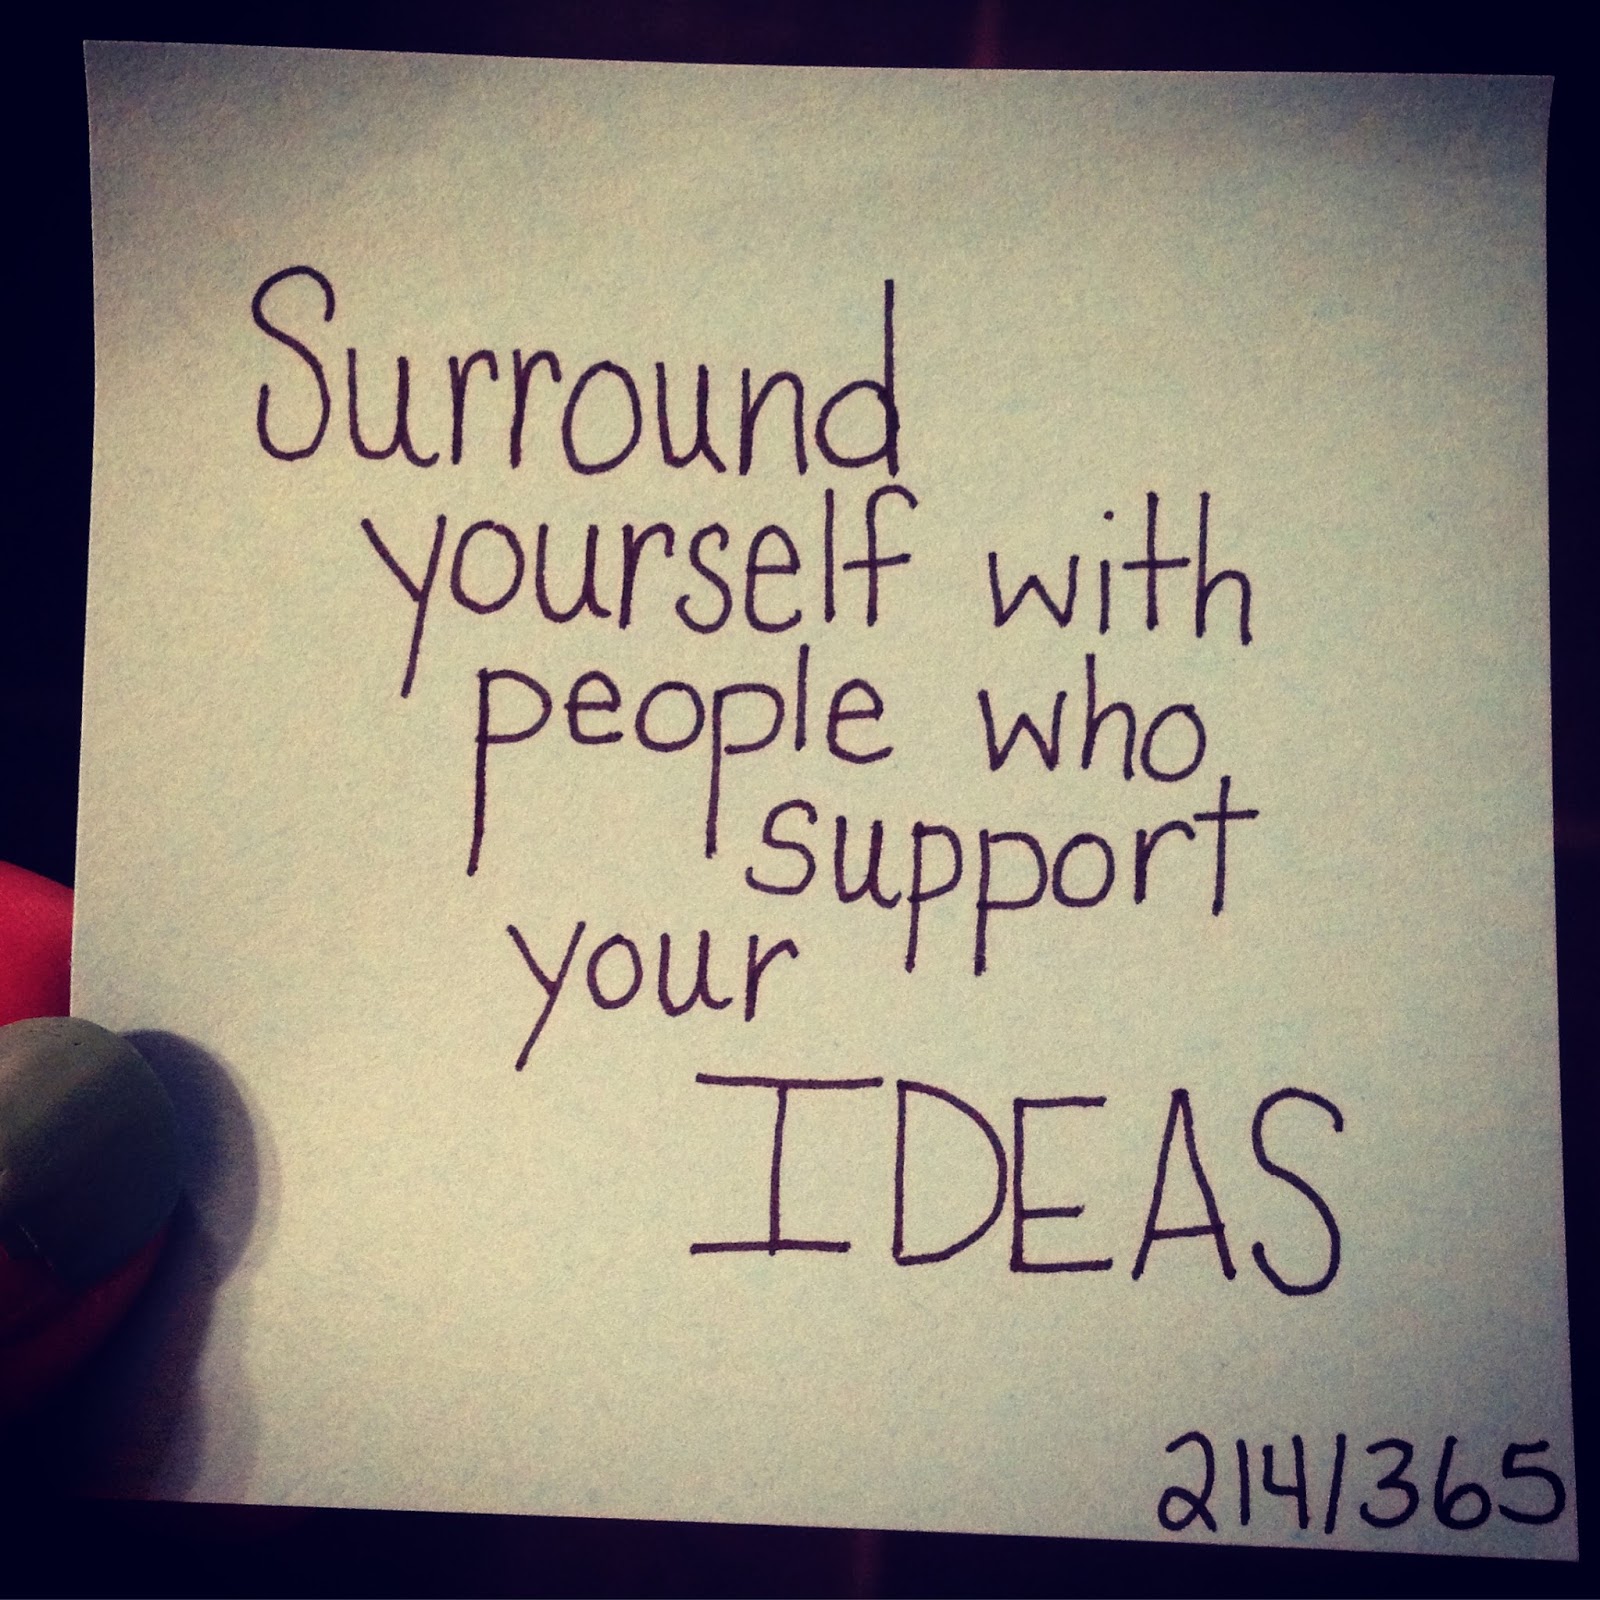 Surround
yourself with
people who
support
your
IDEAS
214/365